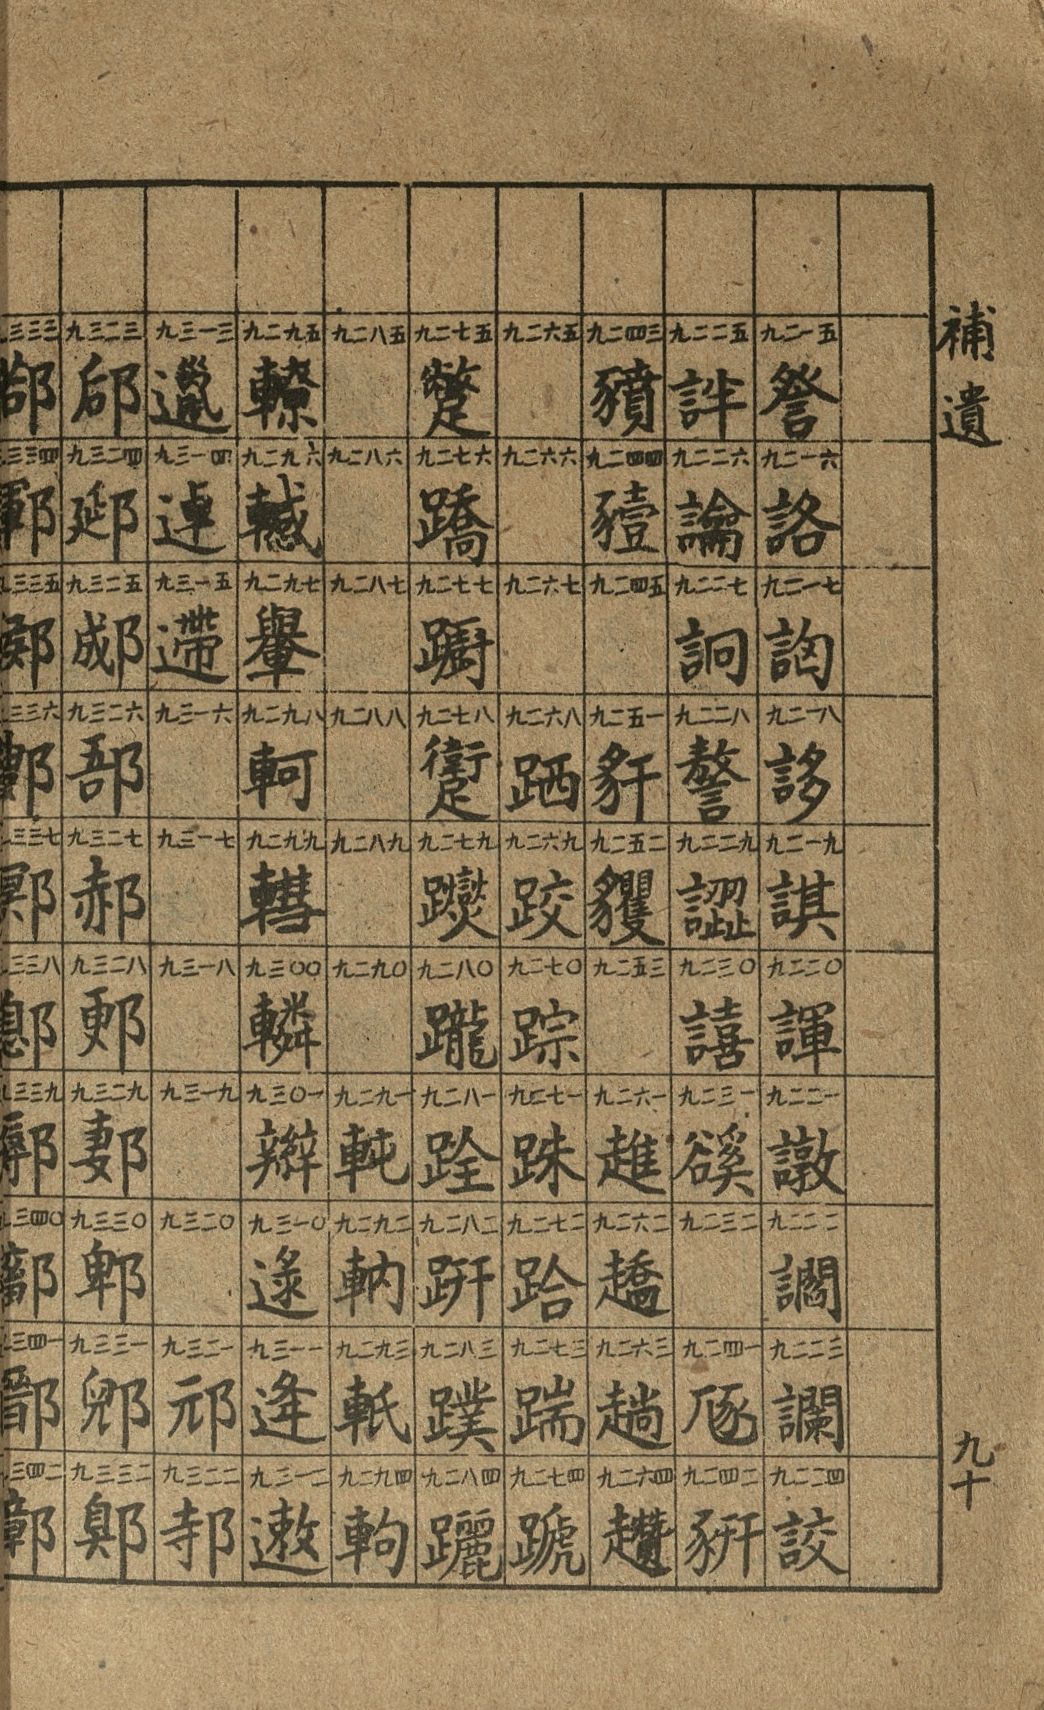 補遺
九二一五 詧
九二一六 詻
九二一七 詾
九二一八 謻
九二一九 諆
九二二〇 諢
九二二一 譈
九二二二 讇
九二二三 讕
九二二四 詨
九二二五 詊
九二二六 讑
九二二七 詗
九二二八 謷
九二二九 譅
九二三〇 譆
九二三一 豀
九二三二
九二四一 豗
九二四二 豣
九二四三 豶
九二四四 豷
九二四五
九二五一 豻
九二五二 貜
九二五三
九二六一 趡
九二六二 趫
九二六三 趟
九二六四 趲
九二六五
九二六六
九二六七
九二六八 跴
九二六九 跤
九二七〇 踪
九二七一 跦
九二七二 跲
九二七三 踹
九二七四 蹏
九二七五 蹩
九二七六 蹻
九二七七 躕
九二七八 躗
九二七九
九二八〇 躘
九二八一 跧
九二八二 趼
九二八三 蹼
九二八四 躧
九二八五
九二八六
九二八七
九二八八
九二八九
九二九〇
九二九一 軘
九二九二 軜
九二九三 軝
九二九四 軥
九二九五 轑
九二九六 轗
九二九七 轝
九二九八 軻
九二九九 轊
九三〇〇 轔
九三〇一 辮
九三一〇 逯
九三一一 逄
九三一二 遫
九三一三 邋
九三一四 逴
九三一五 遰
九三一六
九三一七
九三一八
九三一九
九三二〇
九三二一 邧
九三二二 邿
九三二三 郈
九三二四 郔
九三二五 郕
九三二六 郚
九三二七 郝
九三二八 郠
九三二九 郪
九三三〇 郫
九三三一 郳
九三三二 鄓
九三三三
九三三四 鄆
九三三五
九三三六
九三三七
九三三八
九三三九
九三四〇
九三四一 鄑
九三四二 鄣
九十